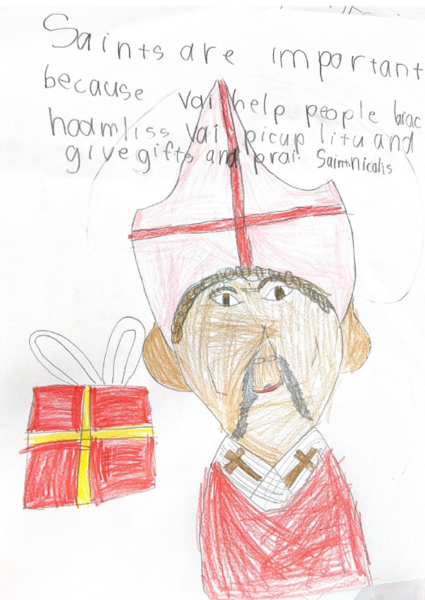 Saints are important
because vai help people
hoamliss vai picup litu and
give gifts and prai Saint nicalis